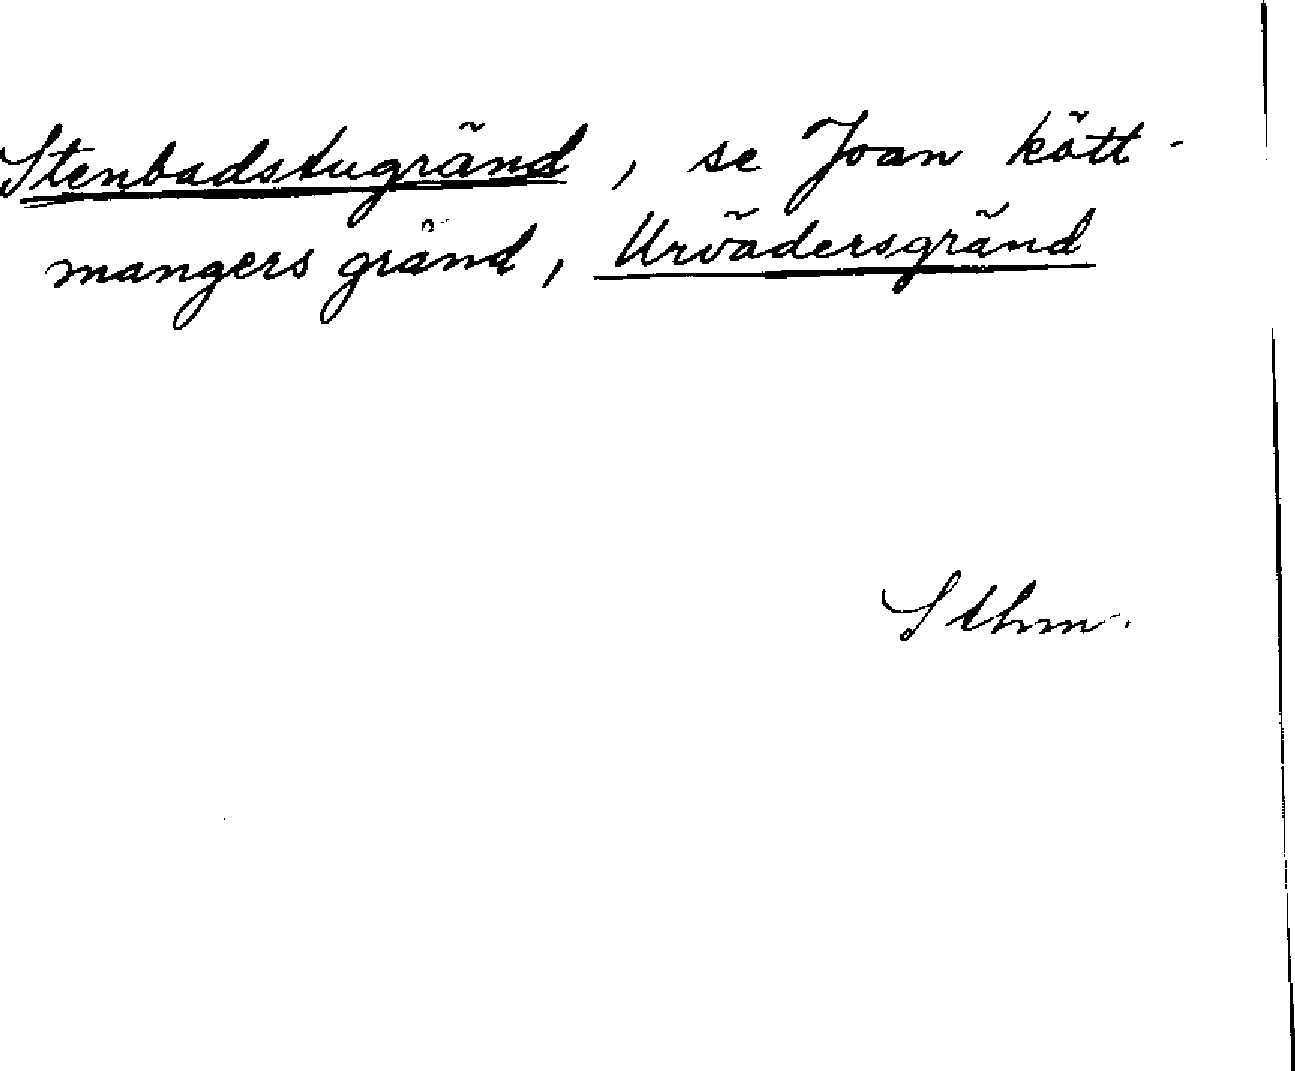 Stenbadstugränd, se Joan kött-
mangers gränd, Urvädersgränd
Sthm.